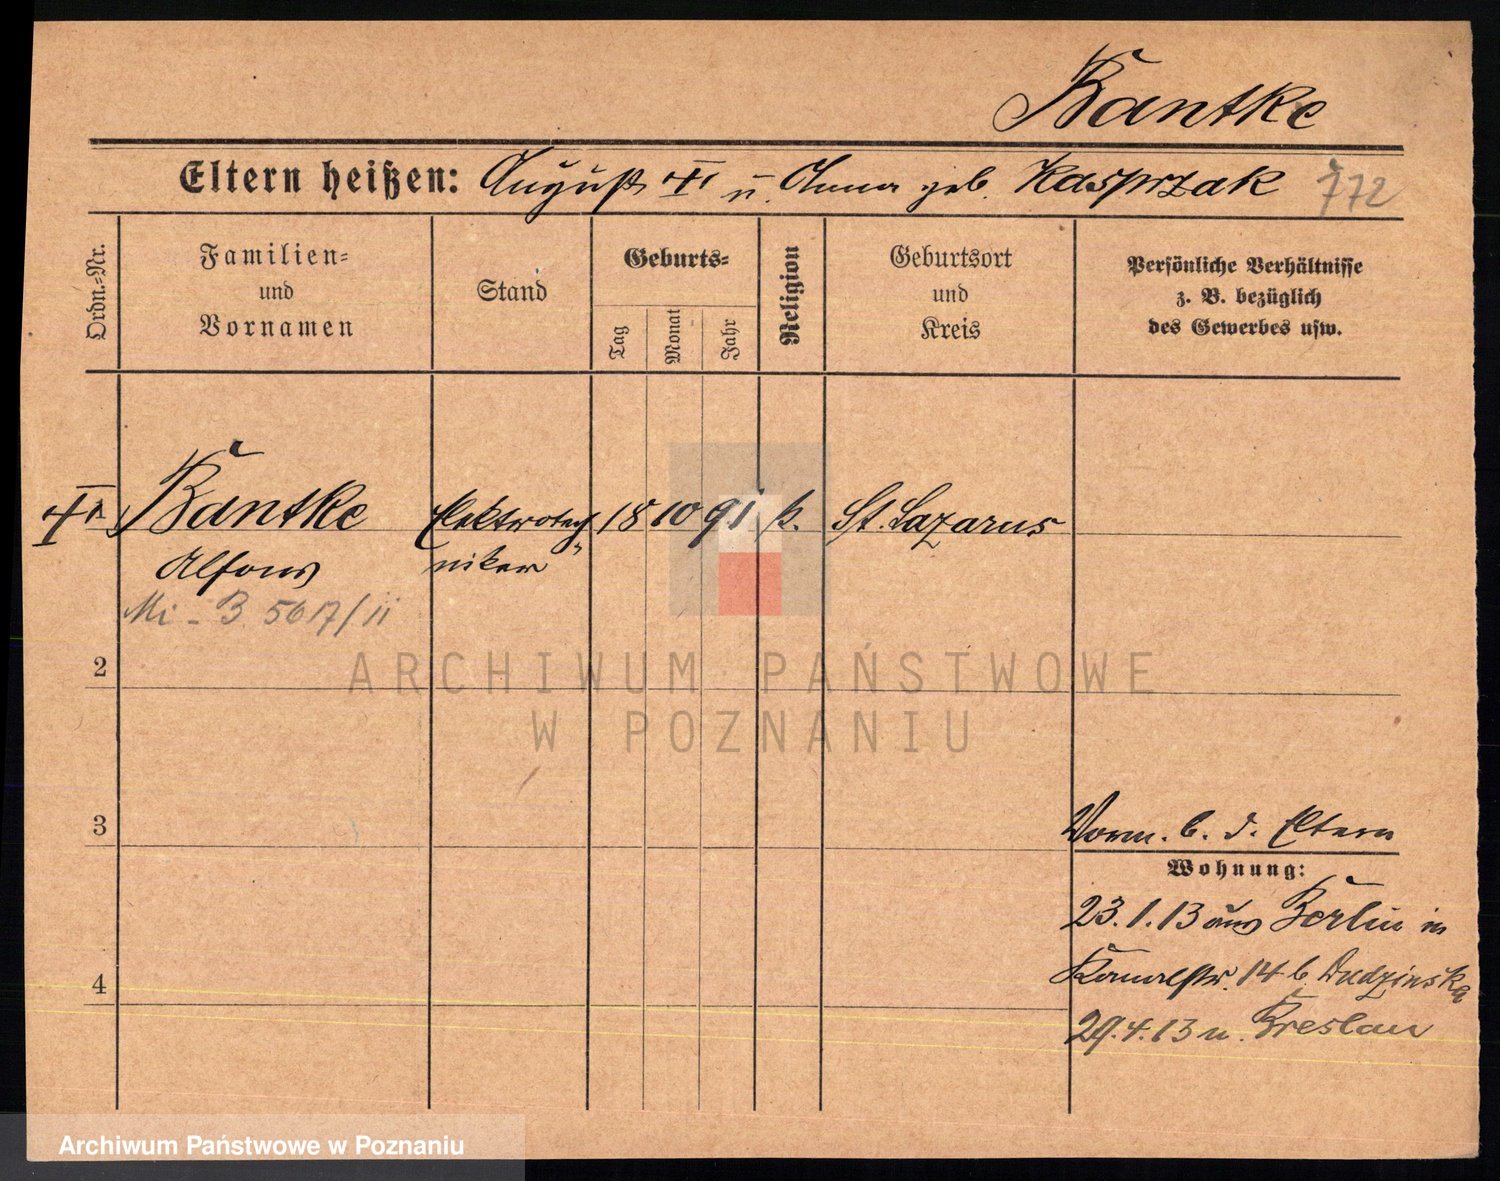 Bantke
Eltern heißen: August u. Anna geb. Kasprzak 772
Ordn.-Nr.
Familien-
und
Vornamen
Stand
Geburts-
Tag
Monat
Jahr
Religion
Geburtsort
und
Kreis
Persönliche Verhältnisse
z. B. bezüglich
des Gewerbes usw.
Bantke Elektrotech 18 10 91 k. St. Lazarus
Alfons niker
Mi - B 5617/II
2
ARCHIWUM PAŃSTWOWE
W POZNANIU
3
Vorm. b. d. Eltern
Wohnung:
23.1.13 aus Berlin in
Kanalstr. 14 b. Dudzinska
4
29.4.13 n. Breslau
Archiwum Państwowe w Poznaniu